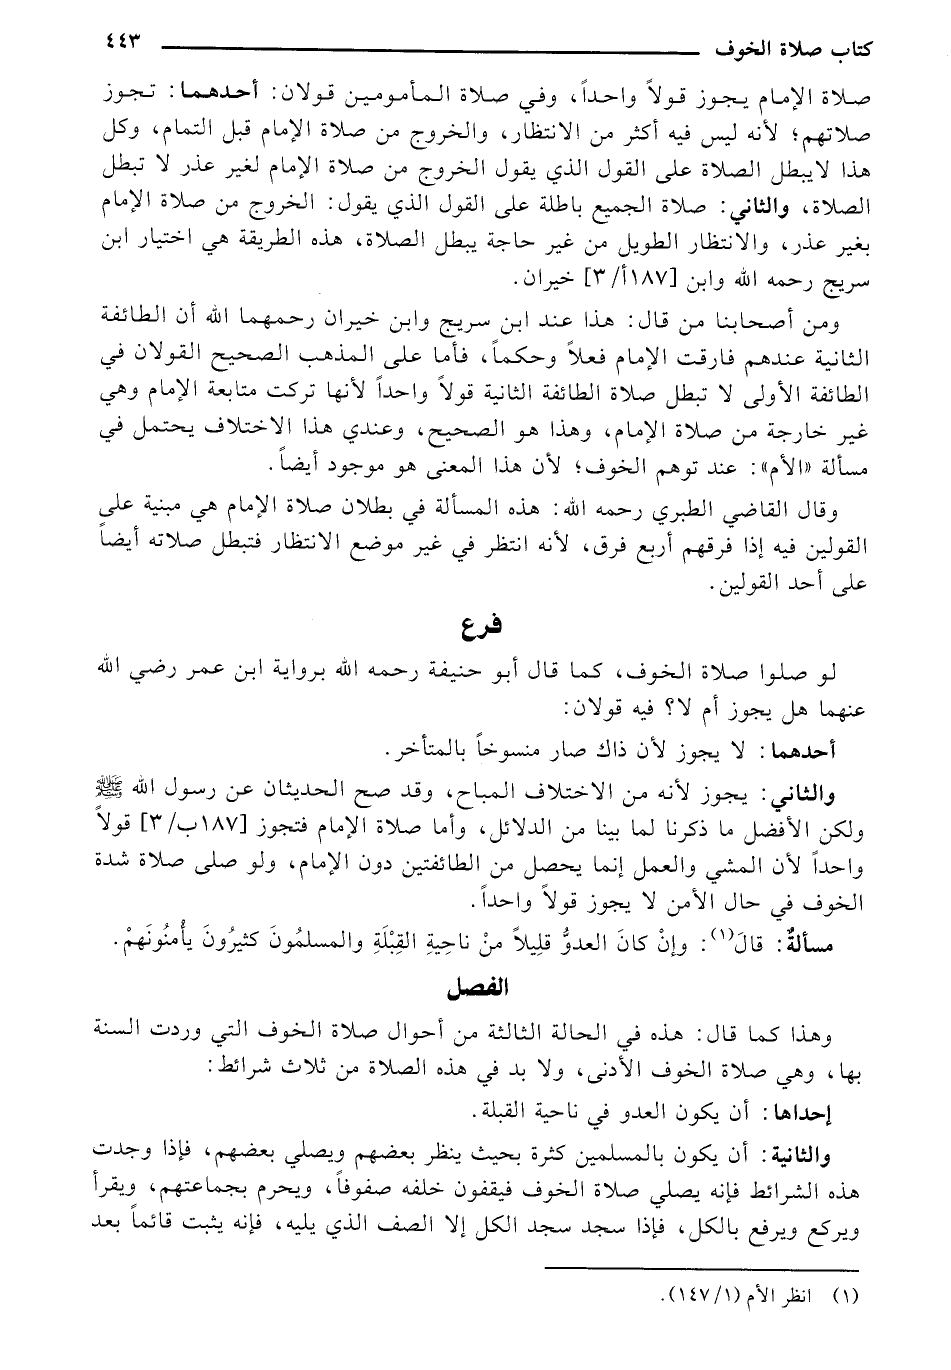 كتاب صلاة الخوف ٤٤٣
صلاة الإمام يجوز قولاً واحداً، وفي صلاة المأمومين قولان: أحدهما: تجوز
صلاتهم؛ لأنه ليس فيه أكثر من الانتظار، والخروج من صلاة الإمام قبل التمام، وكل
هذا لايبطل الصلاة على القول الذي يقول الخروج من صلاة الإمام لغير عذر لا تبطل
الصلاة، والثاني: صلاة الجميع باطلة على القول الذي يقول: الخروج من صلاة الإمام
بغير عذر، والانتظار الطويل من غير حاجة يبطل الصلاة، هذه الطريقة هي اختيار ابن
سريج رحمه الله وابن [١٨٧أ/ ٣] خيران.
ومن أصحابنا من قال: هذا عند ابن سريج وابن خيران رحمهما الله أن الطائفة
الثانية عندهم فارقت الإمام فعلاً وحكماً، فأما على المذهب الصحيح القولان في
الطائفة الأولى لا تبطل صلاة الطائفة الثانية قولاً واحداً لأنها تركت متابعة الإمام وهي
غير خارجة من صلاة الإمام، وهذا هو الصحيح، وعندي هذا الاختلاف يحتمل في
مسألة «الأم»: عند توهم الخوف؛ لأن هذا المعنى هو موجود أيضاً.
وقال القاضي الطبري رحمه الله: هذه المسألة في بطلان صلاة الإمام هي مبنية على
القولين فيه إذا فرقهم أربع فرق، لأنه انتظر في غير موضع الانتظار فتبطل صلاته أيضاً
على أحد القولين.
فرع
لو صلوا صلاة الخوف، كما قال أبو حنيفة رحمه الله برواية ابن عمر رضي الله
عنهما هل يجوز أم لا؟ فيه قولان:
أحدهما: لا يجوز لأن ذاك صار منسوخاً بالمتأخر.
والثاني: يجوز لأنه من الاختلاف المباح، وقد صح الحديثان عن رسول الله ﷺ
ولكن الأفضل ما ذكرنا لما بينا من الدلائل، وأما صلاة الإمام فتجوز [١٨٧ب/ ٣] قولاً
واحداً لأن المشي والعمل إنما يحصل من الطائفتين دون الإمام، ولو صلى صلاة شدة
الخوف في حال الأمن لا يجوز قولاً واحداً.
مسألةٌ: قالَ(١): وإنْ كانَ العدوُّ قلِيلاً منْ ناحِيةِ القِبْلَةِ والمسلمُونَ كثيرُونَ يأْمنُونَهمْ.
الفصل
وهذا كما قال: هذه في الحالة الثالثة من أحوال صلاة الخوف التي وردت السنة
بها، وهي صلاة الخوف الأدنى، ولا بد في هذه الصلاة من ثلاث شرائط:
إحداها: أن يكون العدو في ناحية القبلة.
والثانية: أن يكون بالمسلمين كثرة بحيث ينظر بعضهم ويصلي بعضهم، فإذا وجدت
هذه الشرائط فإنه يصلي صلاة الخوف فيقفون خلفه صفوفاً، ويحرم بجماعتهم، ويقرأ
ويركع ويرفع بالكل، فإذا سجد سجد الكل إلا الصف الذي يليه، فإنه يثبت قائماً بعد
(١) انظر الأم (١/ ١٤٧).